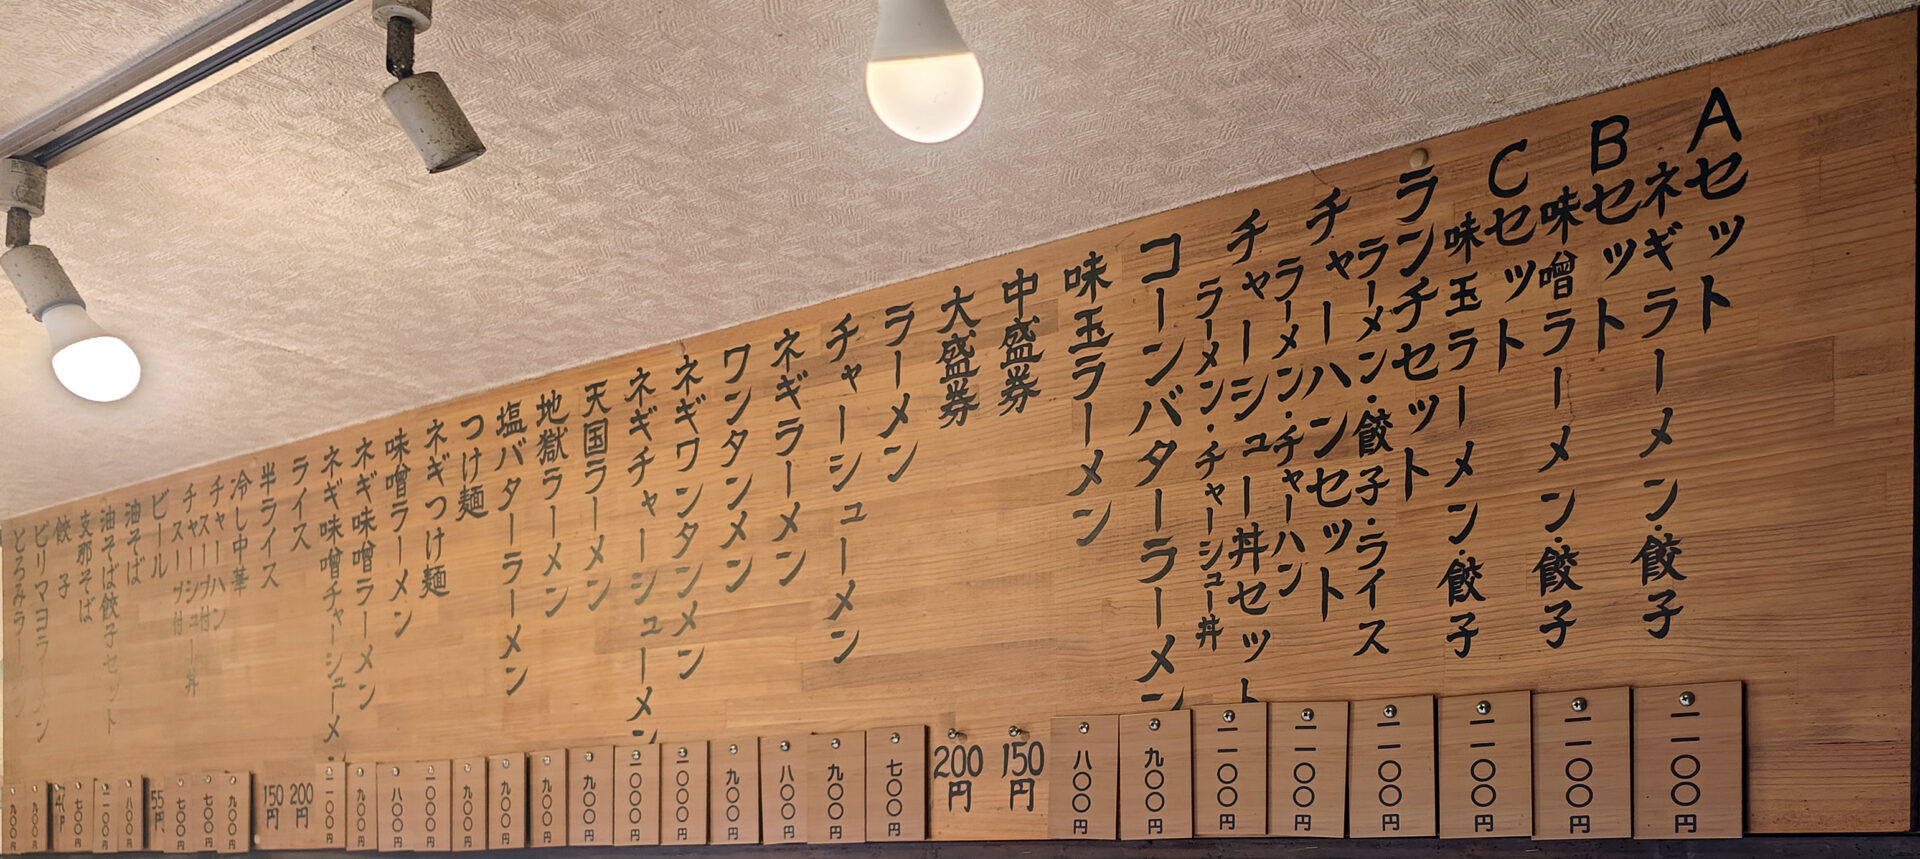 Aセット
ネギラーメン・餃子
一一〇〇円
Bセット
味噌ラーメン・餃子
一一〇〇円
Cセット
味玉ラーメン・餃子
一一〇〇円
ランチセット
ラーメン・餃子・ライス
一一〇〇円
チャーハンセット
ラーメン・チャーハン
一一〇〇円
チャーシュー丼セット
ラーメン・チャーシュー丼
一一〇〇円
コーンバターラーメン
九〇〇円
味玉ラーメン
八〇〇円
中盛券
150円
大盛券
200円
ラーメン
七〇〇円
チャーシューメン
九〇〇円
ネギラーメン
八〇〇円
ワンタンメン
九〇〇円
ネギワンタンメン
一〇〇〇円
ネギチャーシューメン
一〇〇〇円
天国ラーメン
九〇〇円
地獄ラーメン
九〇〇円
塩バターラーメン
九〇〇円
つけ麺
九〇〇円
ネギつけ麺
一〇〇〇円
味噌ラーメン
八〇〇円
ネギ味噌ラーメン
九〇〇円
ネギ味噌チャーシューメ
一一〇〇円
ライス
200円
半ライス
150円
冷し中華
九〇〇円
チャーハン
スープ付
七〇〇円
チャーシュー丼
スープ付
七〇〇円
ビール
油そば
八〇〇円
油そば餃子セット
一一〇〇円
支那そば
七〇〇円
餃子
ピリマヨラーメン
九〇〇円
とろみラーメン
九〇〇円